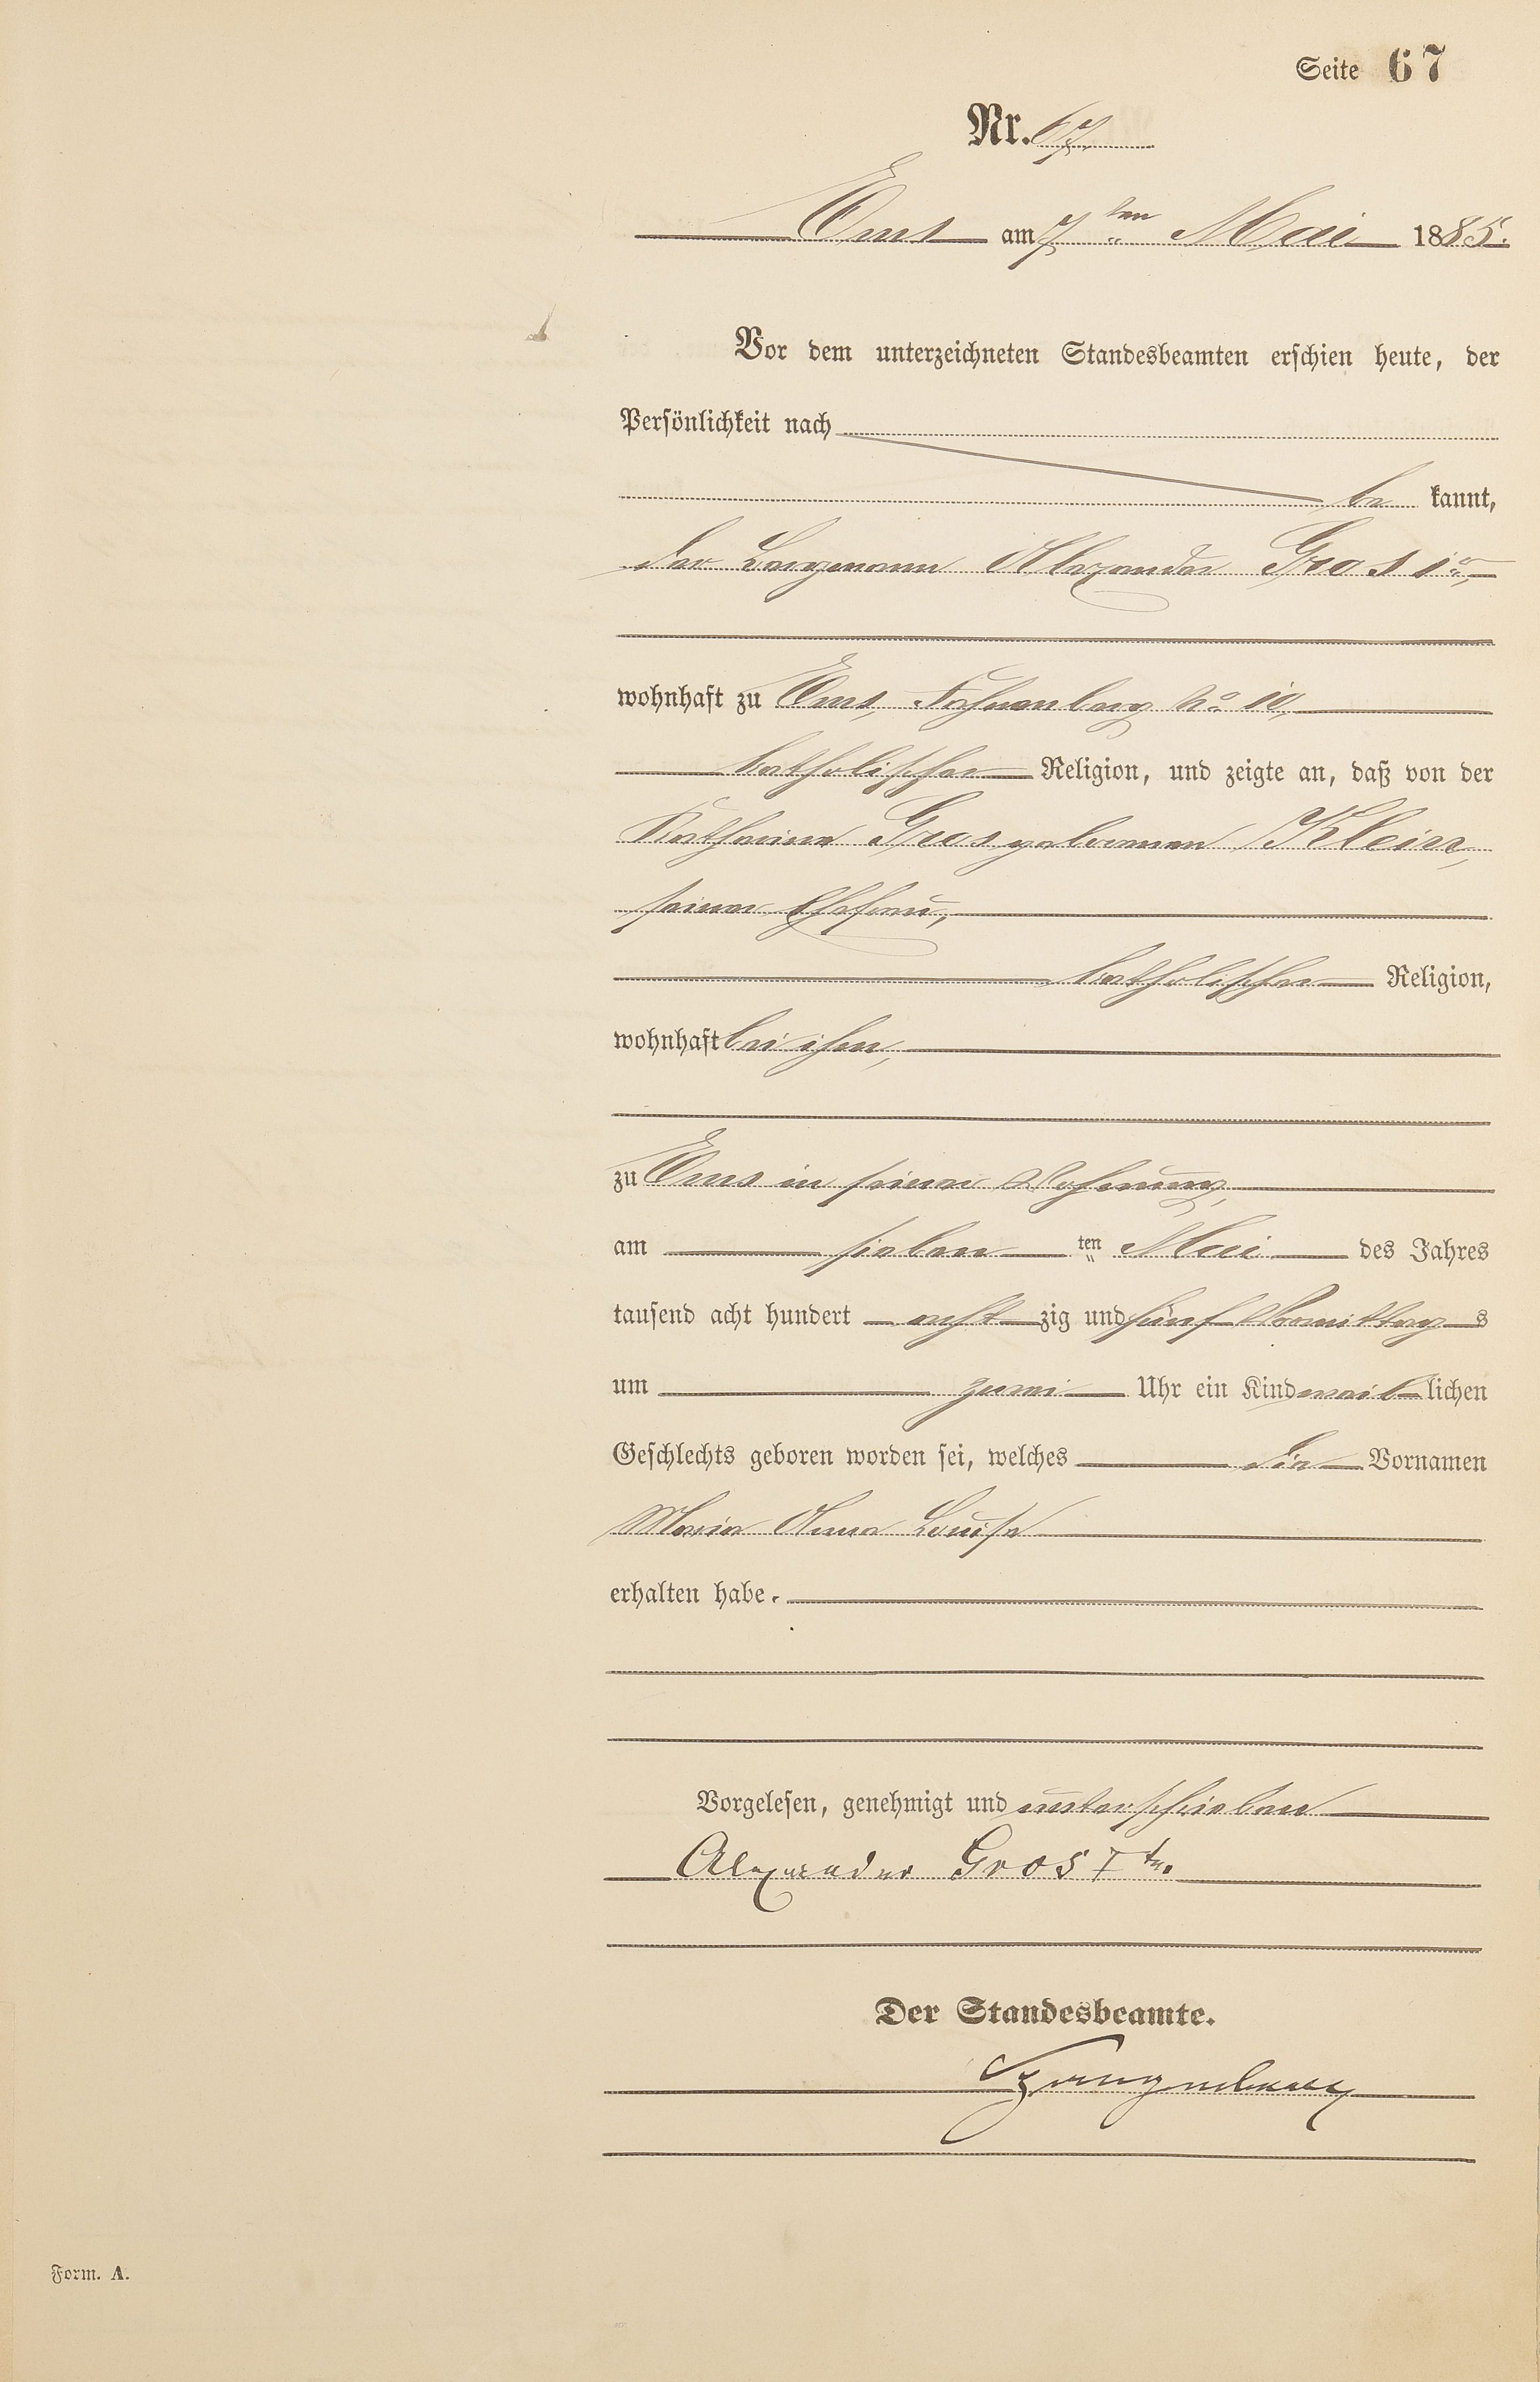 Seite 67
Nr. 67.
Ems am 7ten Mai 1885.
Vor dem unterzeichneten Standesbeamten erschien heute, der
Persönlichkeit nach
be kannt,
der Bergmann Alexander Gros 1r,
wohnhaft zu Ems, No. 10,
katholischer Religion, und zeigte an, daß von der
Katharina Gros geborenen Klein,
seiner Ehefrau,
katholischer Religion,
wohnhaft bei ihm,
zu Ems in seiner Wohnung,
am sieben ten Mai des Jahres
tausend acht hundert acht zig und fünf Vormittag s
um zwei Uhr ein Kind weib lichen
Geschlechts geboren worden sei, welches die Vornamen
Maria Anna Louise
erhalten habe.
Vorgelesen, genehmigt und unterschrieben
Alexander Gros Iter
Der Standesbeamte.
Form. A.